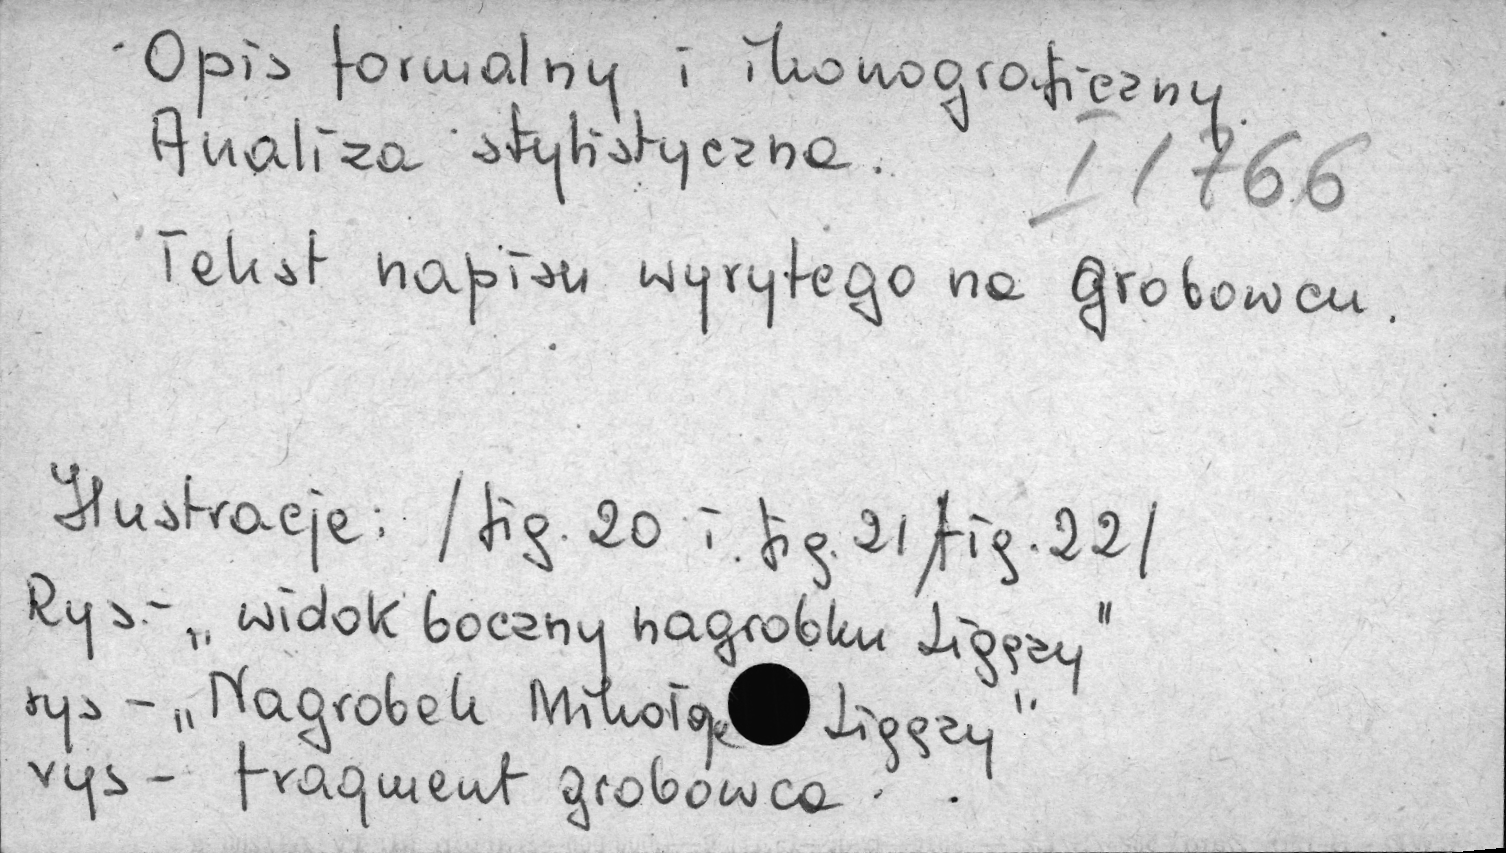 Opis formalny i ikonograficzny.
Analiza stylistyczna.
I/766
Tekst napisu wyrytego na grobowcu.
Ilustracje: /fig. 20 i. fig. 21/fig. 22/
Rys.- „widok boczny nagrobku Ligęzy"
rys - „Nagrobek Mikołaja Ligęzy"
rys - fragment grobowca.